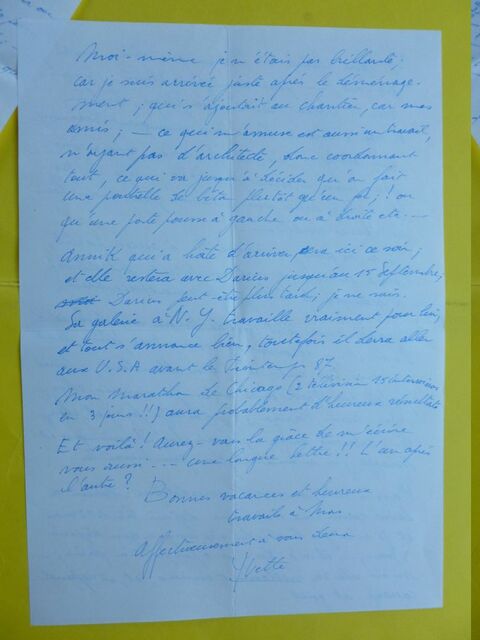 Moi-même je n'étais pas brillante,
car je suis arrivée juste après le déménage-
ment; qui s'ajoutait au chantier, car mes
amis; — ce qui m'amuse est aussi un travail,
n'ayant pas d'architecte, donc coordonnant
tout, ce qui va jusqu'à décider qu'on fait
une poubelle de béton plutôt qu'en fer; ! ou
qu'une porte pousse à gauche ou à droite etc...
Annik qui a hâte d'arriver, sera ici ce soir;
et elle restera avec Darius jusqu'au 15 Septembre;
Darius peut-être plus tard; je ne sais.
Sa galerie à N.Y. travaille vraiment pour lui,
et tout s'annonce bien, toutefois il devra aller
aux U.S.A avant le Printemps 87
Mon Marathon de Chicago (2 télévision 15 interviews
en 3 jours!!) aura probablement d'heureux résultats
Et voilà! Aurez-vous la grâce de m'écrire
vous aussi... une longue lettre!! L'un après
l'autre?
Bonnes vacances et heureux
travail à Mas.
Affectueusement à vous deux
Yvette